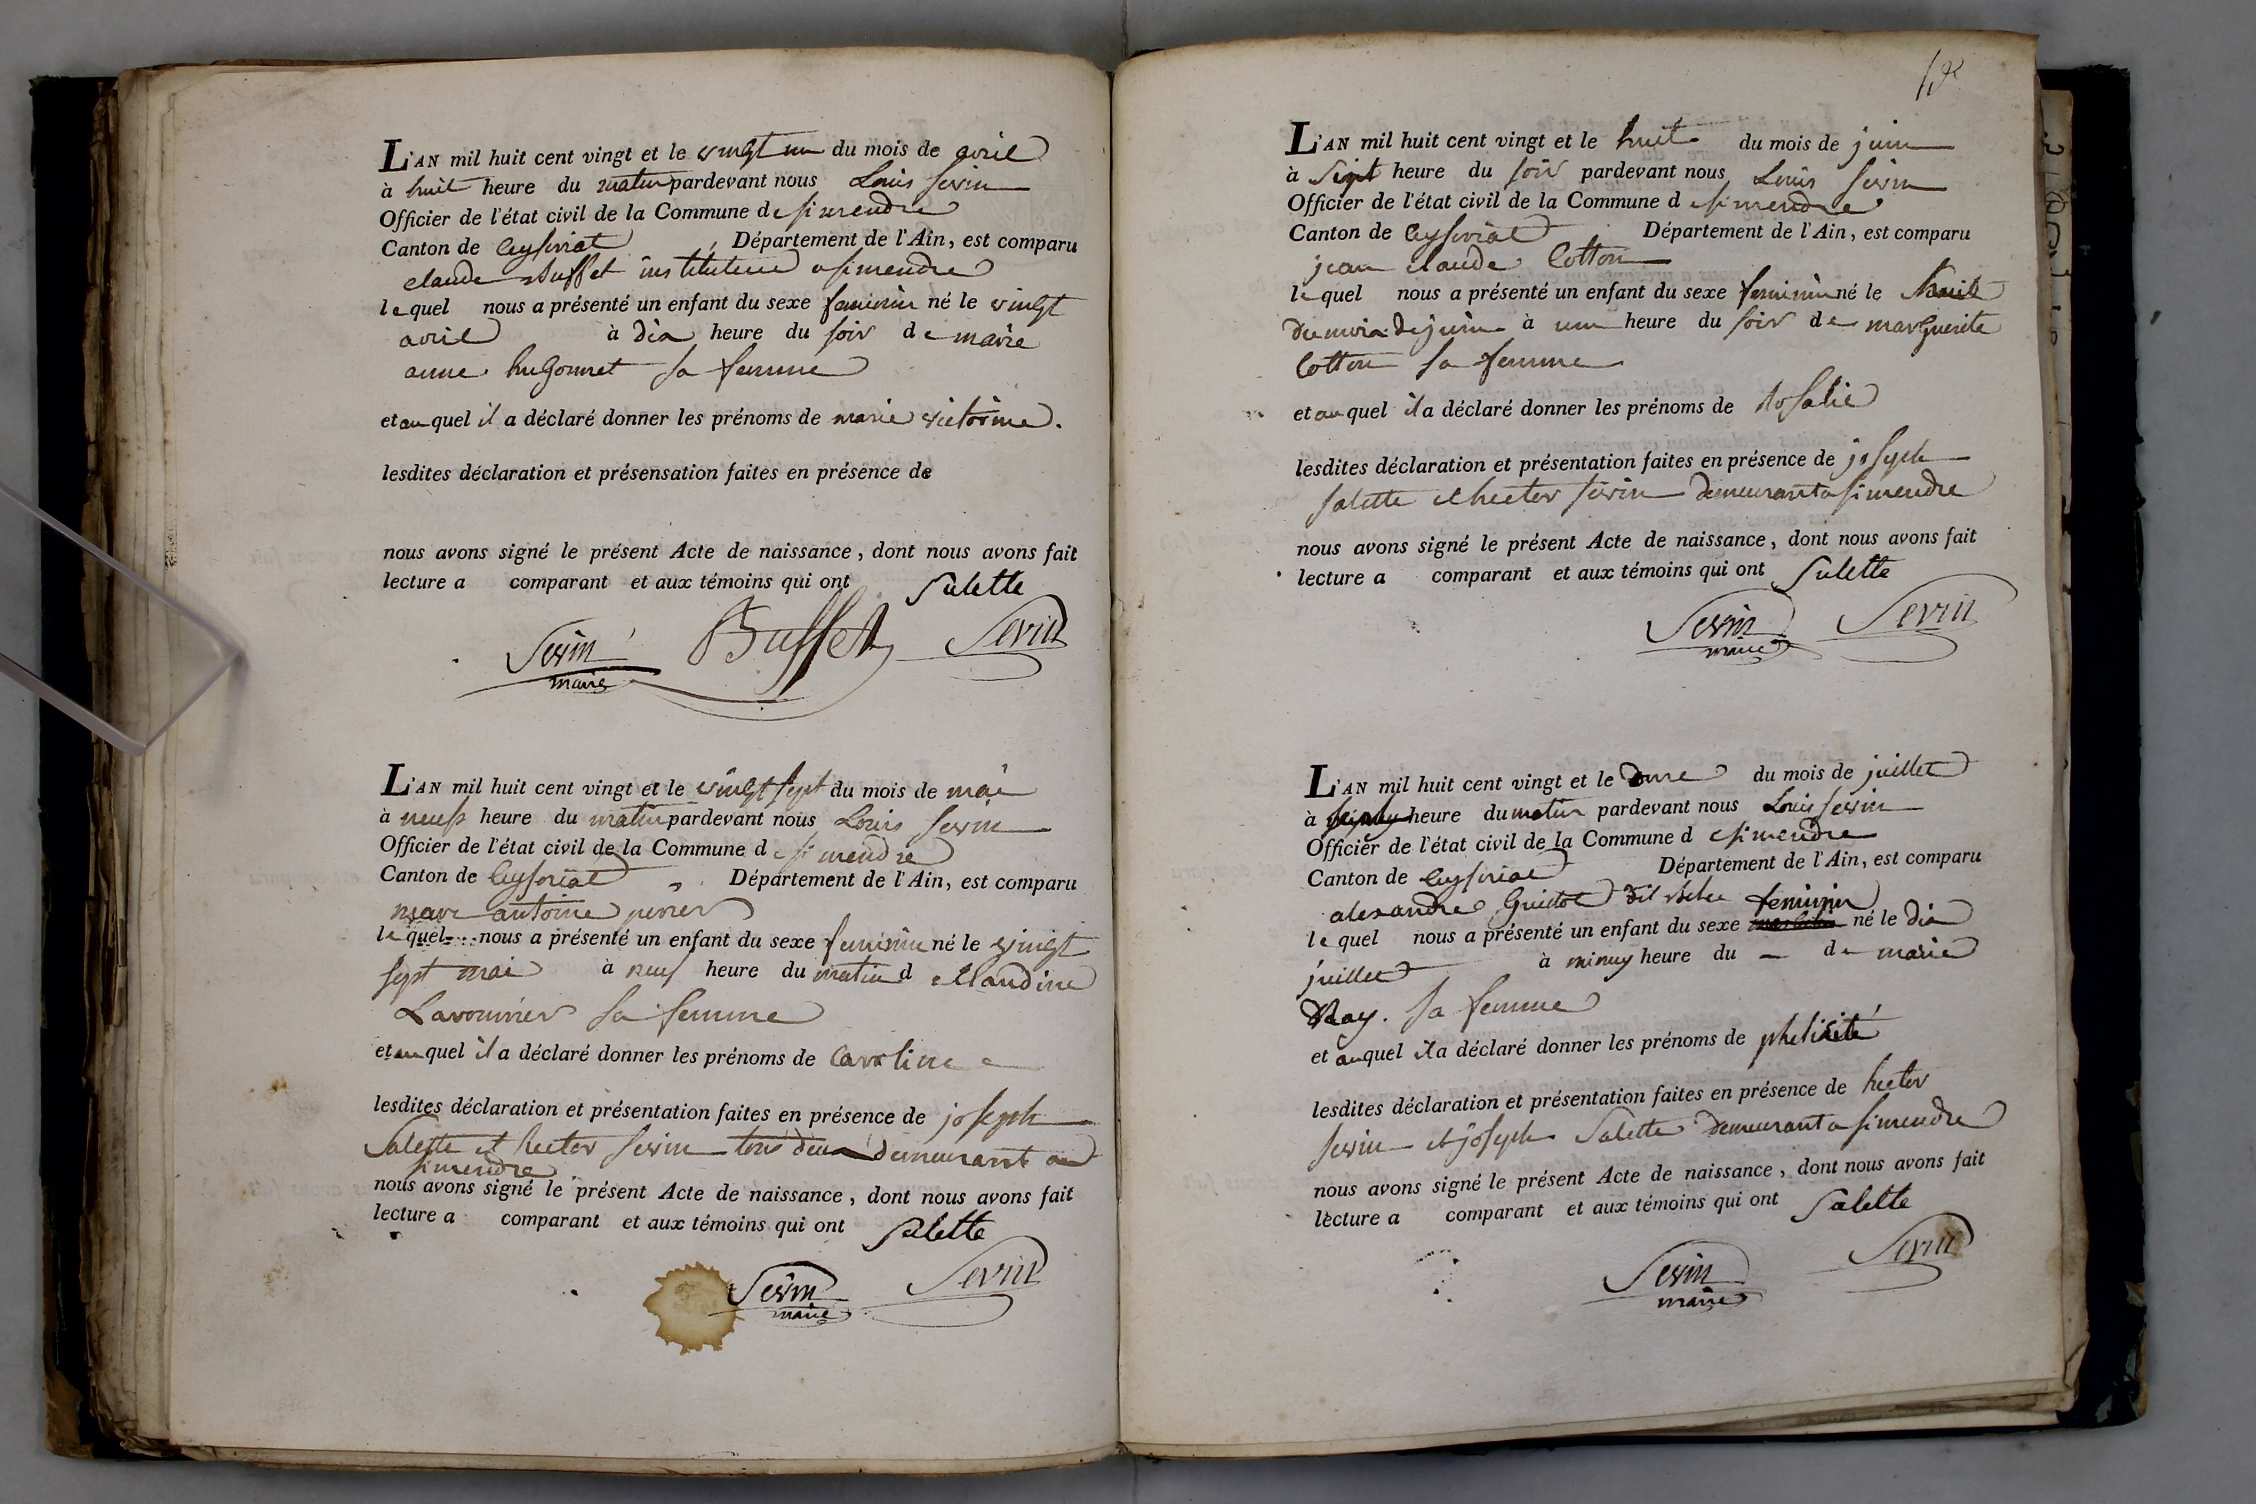 L'AN mil huit cent vingt et le vingt un du mois de avril
à huit heure du matin pardevant nous Louis Sevin
Officier de l'état civil de la Commune de simendre
Canton de Ceyseriat, Département de l'Ain, est comparu
claude Buffet instituteur a simendre
lequel nous a présenté un enfant du sexe feminin né le vingt
avril à dix heure du soir de marie
anne hugonnet sa femme
et au quel il a déclaré donner les prénoms de marie victorine.
lesdites déclaration et présensation faites en présence de
nous avons signé le présent Acte de naissance, dont nous avons fait
lecture a comparant et aux témoins qui ont Salette
Sevin Buffet Sevin
maire
L'AN mil huit cent vingt et le vingt sept du mois de mai
à neuf heure du matin pardevant nous Louis Sevin
Officier de l'état civil de la Commune d e simendre
Canton de Ceyseriat, Département de l'Ain, est comparu
marc antoine
lequel nous a présenté un enfant du sexe feminin né le vingt
sept mai à neuf heure du matin d e Claudine
Lavouvrier sa femme
et au quel il a déclaré donner les prénoms de Caroline
lesdites déclaration et présentation faites en présence de joseph
Salette et hector Sevin tous deux demeurant a
simendre
nous avons signé le présent Acte de naissance, dont nous avons fait
lecture a comparant et aux témoins qui ont Salette
Sevin Sevin
maire
L'AN mil huit cent vingt et le huit du mois de juin
à Sept heure du soir pardevant nous Louis Sevin
Officier de l'état civil de la Commune d e simendre
Canton de Ceyseriat Département de l'Ain, est comparu
jean claude Cotton
lequel nous a présenté un enfant du sexe feminin né le huit
du mois de juin à une heure du soir de marguerite
Cotton sa femme
et au quel il a déclaré donner les prénoms de Rosalie
lesdites déclaration et présentation faites en présence de joseph
salette et hector sevin demeurant a simendre
nous avons signé le présent Acte de naissance, dont nous avons fait
lecture a comparant et aux témoins qui ont Salette
Sevin Sevin
maire
L'AN mil huit cent vingt et le onze du mois de juillet
à heure du matin pardevant nous Louis Sevin
Officier de l'état civil de la Commune d e simendre
Canton de Ceyseriat Département de l'Ain, est comparu
alexandre Guidot dit feminin
lequel nous a présenté un enfant du sexe né le dix
juillet à minuy heure du - de marie
Ray. sa femme
et au quel il a déclaré donner les prénoms de phelisité
lesdites déclaration et présentation faites en présence de hector
sevin et joseph Salette demeurant a simendre
nous avons signé le présent Acte de naissance, dont nous avons fait
lecture a comparant et aux témoins qui ont Salette
Sevin Sevin
maire